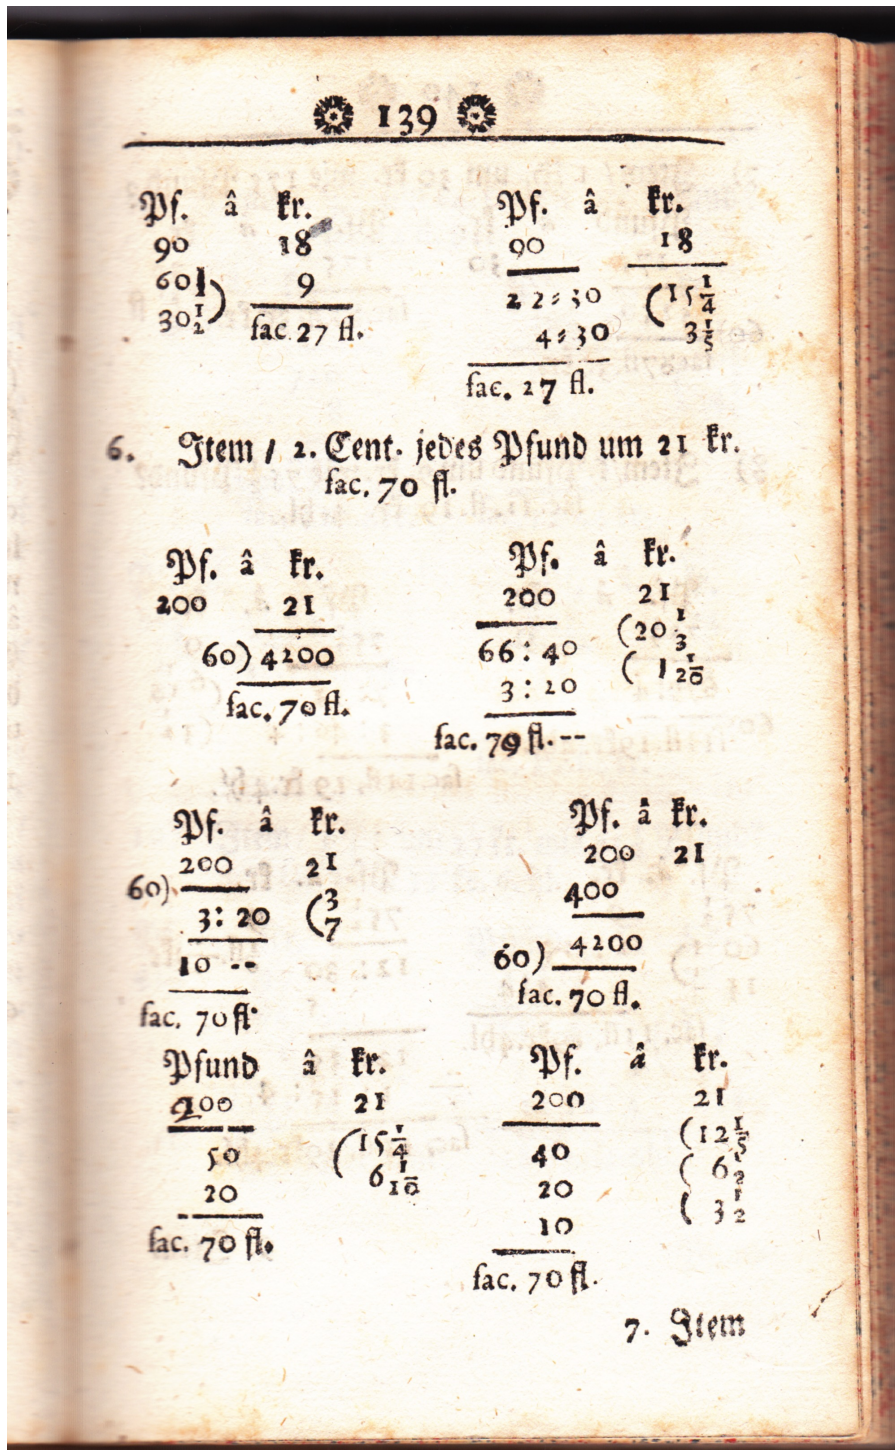 139
Pf. â kr.
90 18
60 1 ) 9
30 1/2
fac. 27 fl.
Pf. â kr.
90 18
22:30 (15 1/4
4:30 3 1/5
fac. 27 fl.
6. Item / 2. Cent. jedes Pfund um 21 kr.
fac. 70 fl.
Pf. â kr.
200 21
60) 4200
fac. 70 fl.
Pf. â kr.
200 21
66:40 (20 1/3
3:20 ( 1 1/20
fac. 70 fl. --
Pf. â kr.
200 21
60)
3:20 (3/7
10 --
fac. 70 fl.
Pf. â kr.
200 21
400
60) 4200
fac. 70 fl.
Pfund â kr.
200 21
50 (15 1/4
20 6 1/10
fac. 70 fl.
Pf. â kr.
200 21
40 (12 1/5
20 ( 6 1/2
10 ( 3 1/2
fac. 70 fl.
7. Item